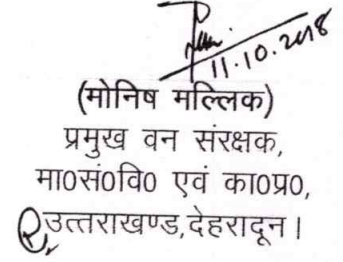 11.10.2018
(मोनिष मल्लिक)
प्रमुख वन संरक्षक,
मा0सं0वि0 एवं का0प्र0,
उत्तराखण्ड,देहरादून।